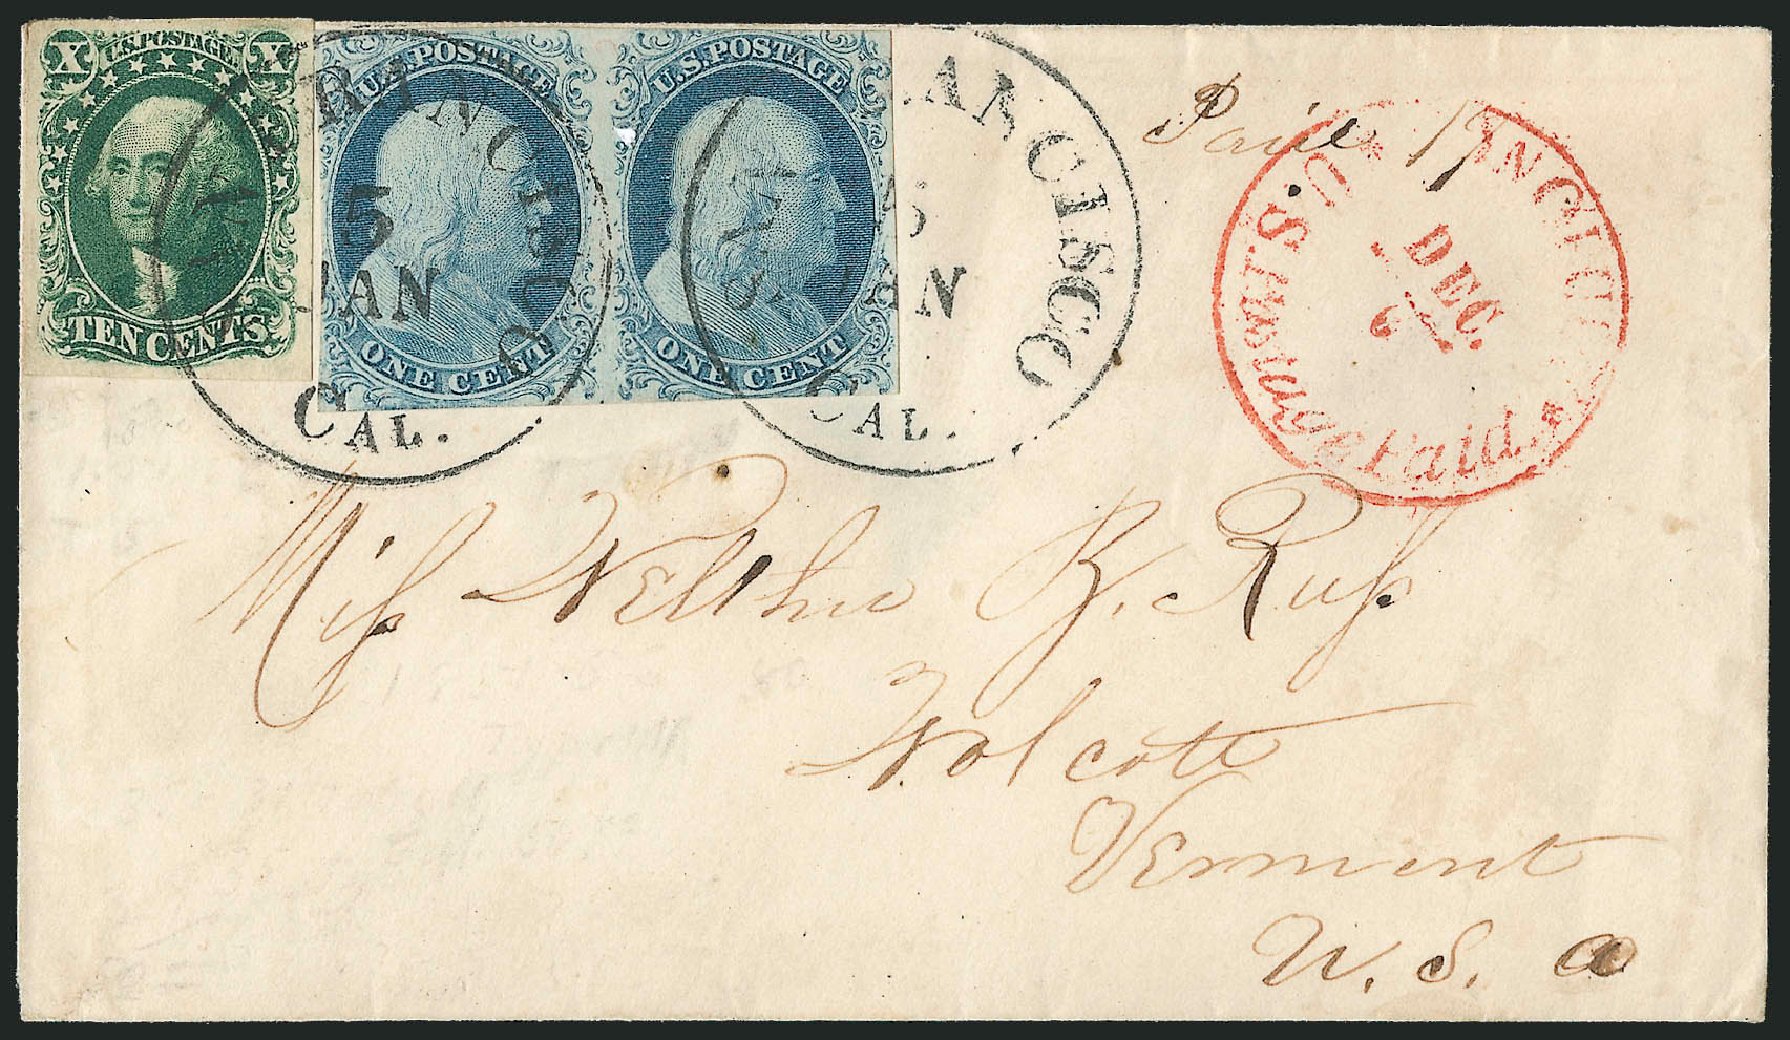 X U.S. POSTAGE X
TEN CENTS
U.S. POSTAGE
ONE CENT
U.S. POSTAGE
ONE CENT
SAN FRANCISCO
5
JAN
CAL.
SAN FRANCISCO
5
JAN
CAL.
Paid 17
U.S. Postage Paid.
DEC.
6
Miss Wellthu B. Russ
Wolcott
Vermont
U. S. a